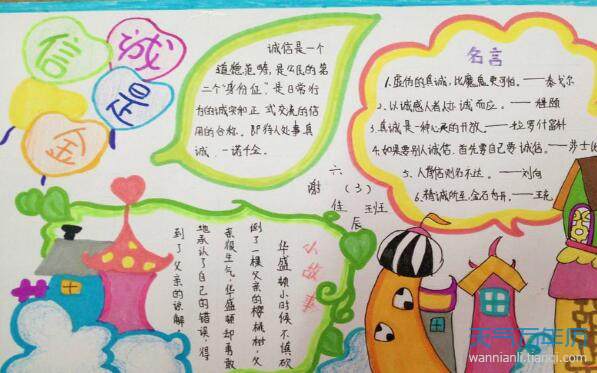 诚
信
是
金
诚信是一个
道德范畴,是公民的第
二个“身份证”是日常行
为的诚实和正式交流的信
用的合称。即待人处事真
诚、一诺千金。
名言
1.虚伪的真诚,比魔鬼更可怕。——泰戈尔
2.以诚感人者人亦诚而应。——程颐
3.真诚是一种心灵的开放。——拉罗什富科
4.如果要别人诚信,首先要自己要诚信。——莎士比
5.人背信则名不达。——刘向
6.精诚所至,金石为开。——王充
六(3)班
谢佳辰
小故事
华盛顿小时候不慎砍
倒了一棵父亲的樱桃树,父
亲很生气,华盛顿却勇敢
地承认了自己的错误,得
到了父亲的谅解
天气万年历
wannianli.tianci.com